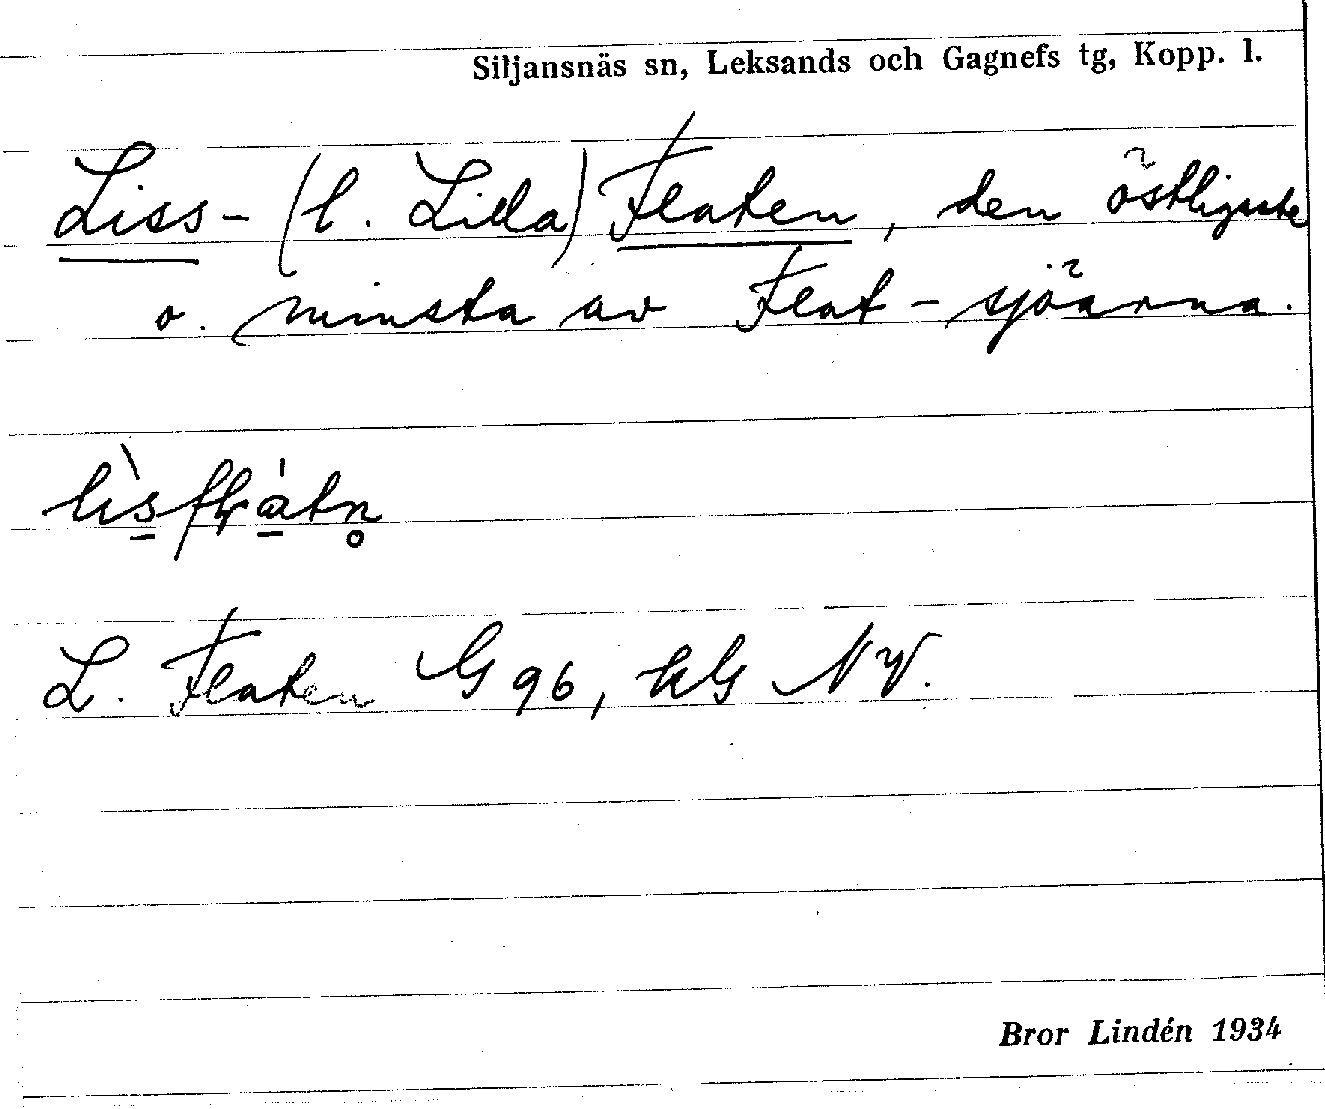 Siljansnäs sn, Leksands och Gagnefs tg, Kopp. l.
Liss- (l. Lilla) Flaten, den östligste
o. minsta av Flat-sjöarna.
L. Flaten G 96, kG NV.
Bror Lindén 1934